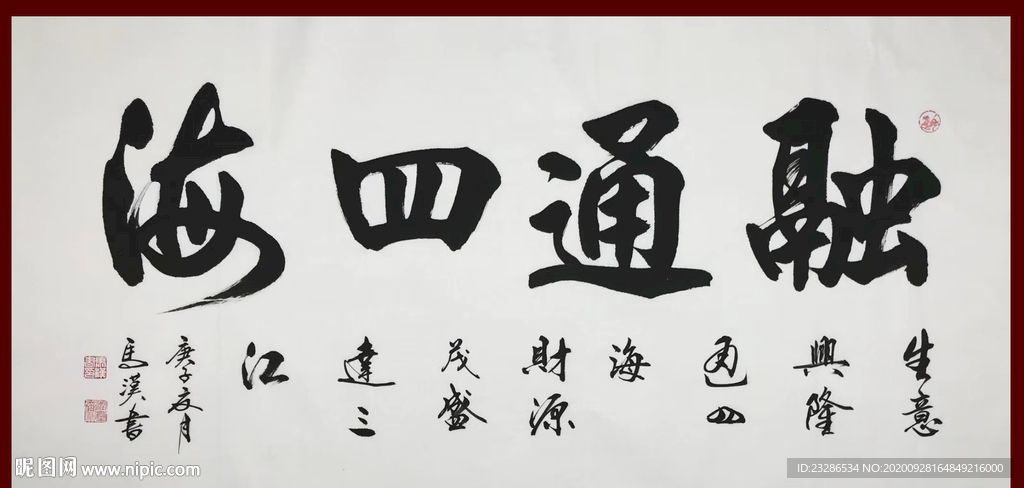 融通四海
生意
興隆
通四
海
財源
茂盛
達三
江
庚子夏月
馬漢書
昵图网 www.nipic.com
ID:23286534 NO:20200928164849216000